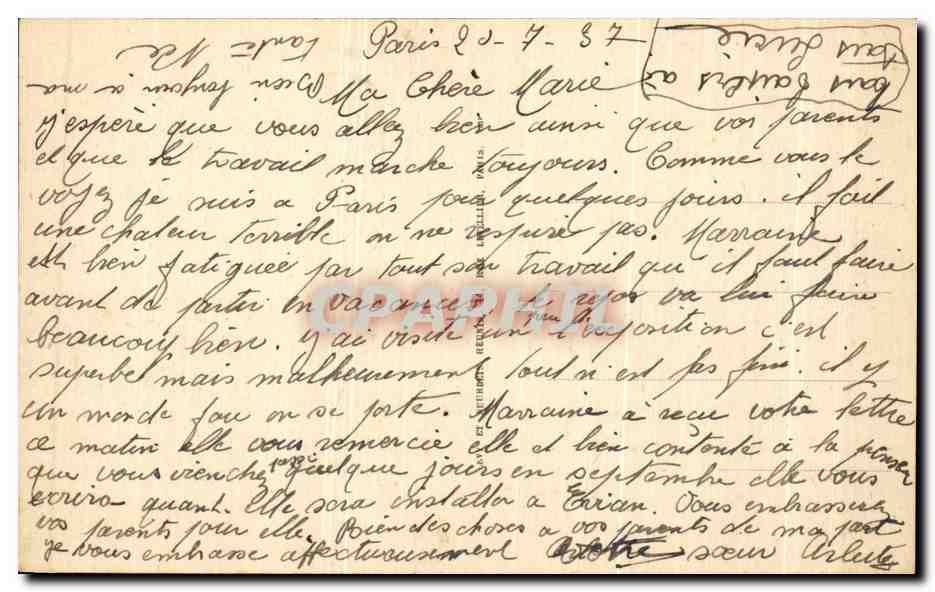 Paris 20-7-37
Ma Chère Marie
j'espère que vous allez bien ainsi que vos parents
et que le travail marche toujours. Comme vous le
voyez je suis a Paris pour quelques jours. il fait
une chaleur terrible on ne respire pas. Marraine
est bien fatiguée par tout son travail qu'il faut faire
avant de partir en vacances, le repos va lui faire
beaucoup bien. j'ai visité un peu l'exposition c'est
superbe mais malheureusement tout n'est pas fini. il y
un monde fou on se porte. Marraine à reçu votre lettre
ce matin elle vous remercie elle et bien contente à la pensée
que vous vienchez passé quelque jours en septembre elle vous
ecrira quant. Elle sera installer a Evian. Vous embrasserez
vos parents pour elle. Bien des choses a vos parents de ma part
je vous embrasse affectueusement sœur Arlette
tous baisers à
tous Lucie
CPARPHIL